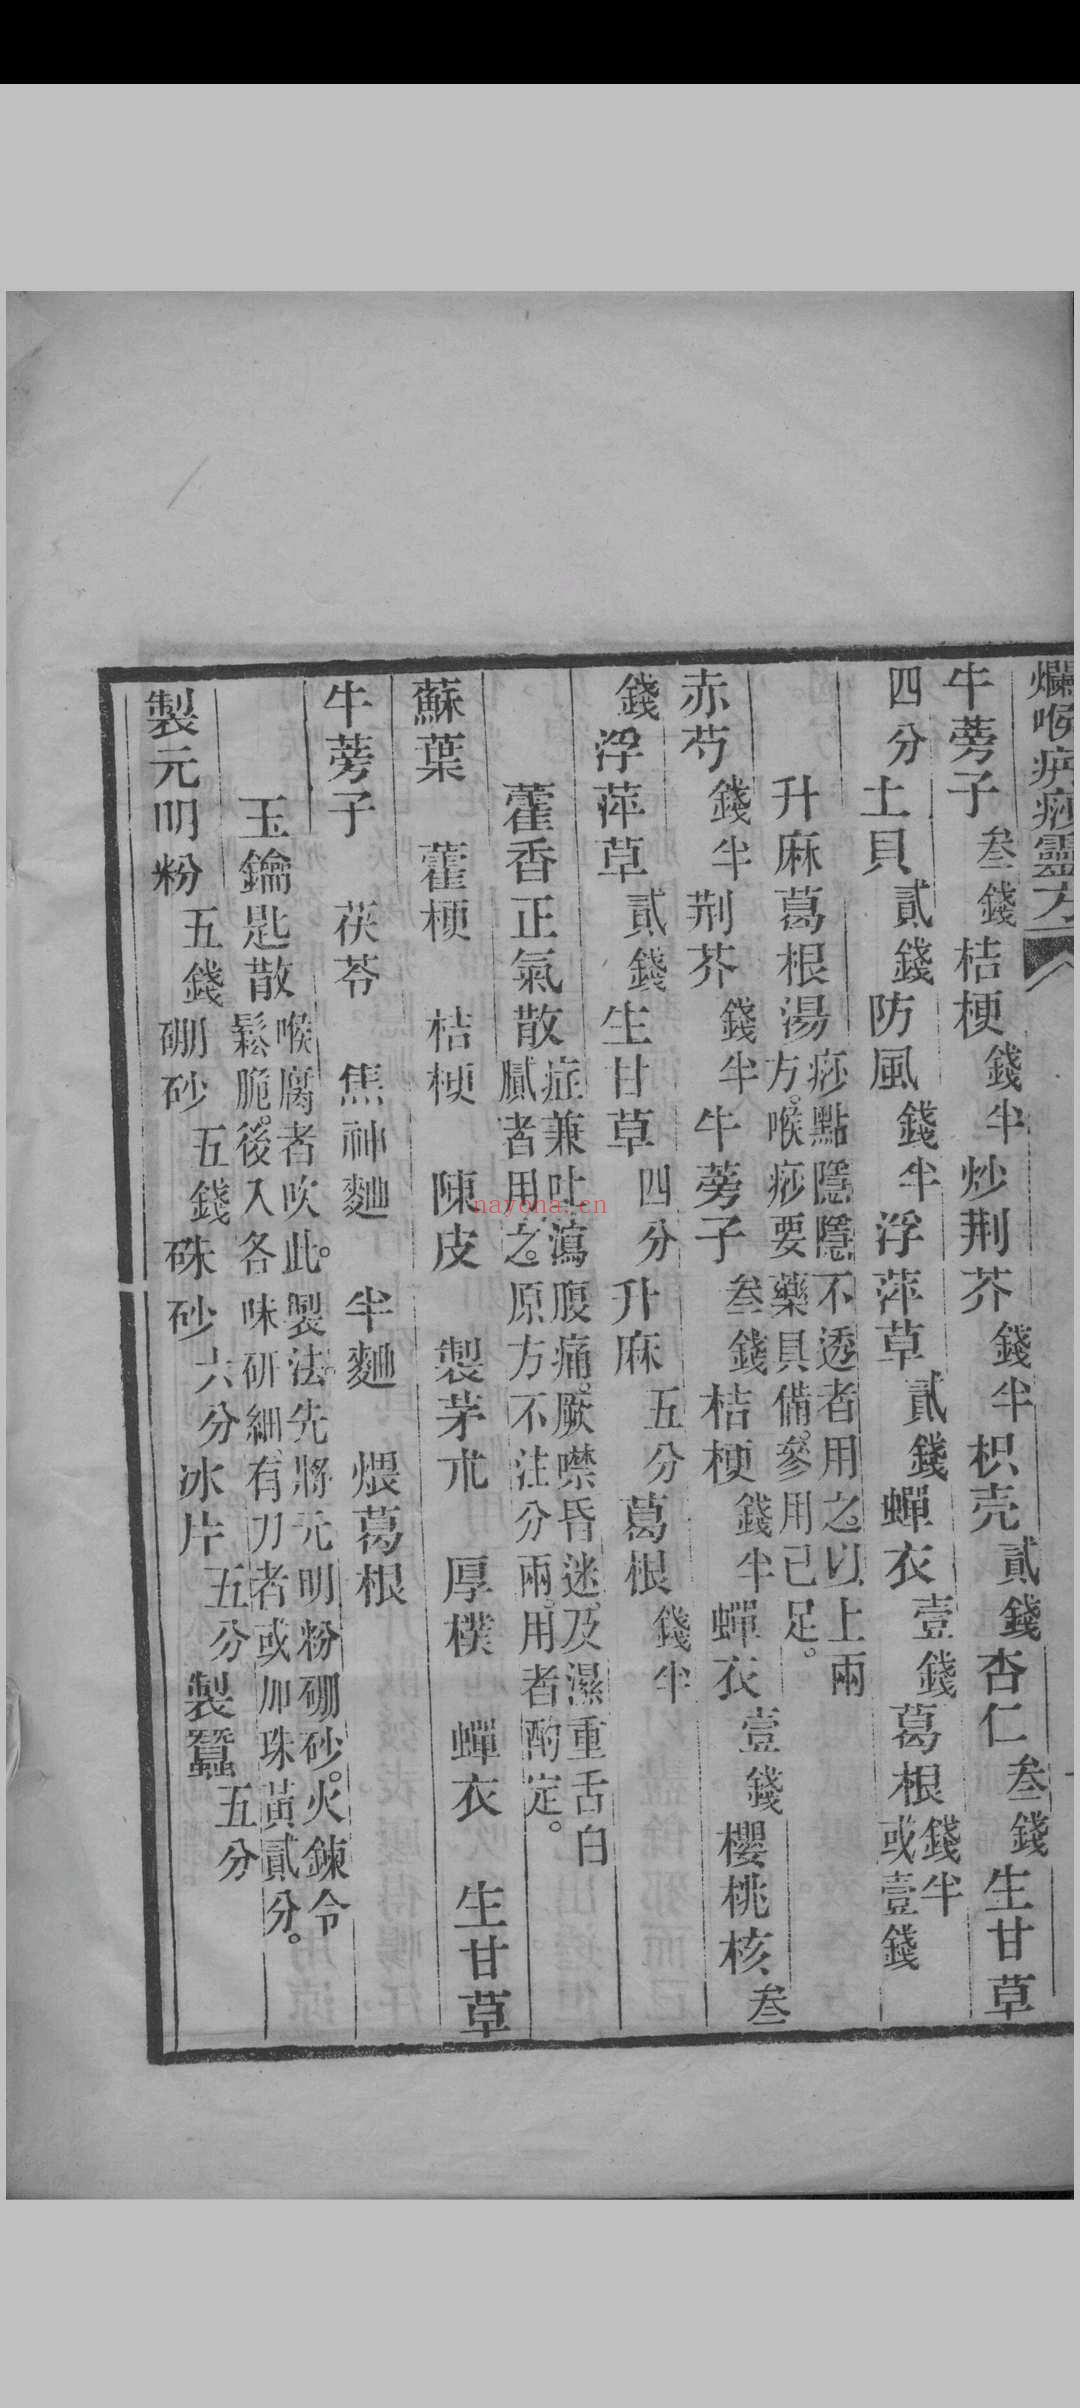 爛喉痧痧靈方
牛蒡子叁錢桔梗錢半炒荆芥錢半枳壳貳錢杏仁叁錢生甘草
四分土貝貳錢防風錢半浮萍草貳錢蟬衣壹錢葛根錢半或壹錢
升麻葛根湯痧點隱隱不透者用之以上兩方。喉痧要藥具備。參用已足。
赤芍錢半荆芥錢半牛蒡子叁錢桔梗錢半蟬衣壹錢櫻桃核叁
錢浮萍草貳錢生甘草四分升麻五分葛根錢半
藿香正氣散症兼吐瀉腹痛。厥噤昏迷。及濕重舌白膩者用之。原方不注分兩。用者酌定。
蘇葉 藿梗 桔梗 陳皮 製茅朮 厚樸 蟬衣 生甘草
牛蒡子 茯苓 焦神麯 半麯 煨葛根
玉鑰匙散喉腐者吹此。製法先將元明粉硼砂。火鍊令鬆脆。後入各味研細、有刀者或加珠黃貳分。
製元明粉五錢硼砂五錢硃砂六分冰片五分製蠶五分
nayona.cn